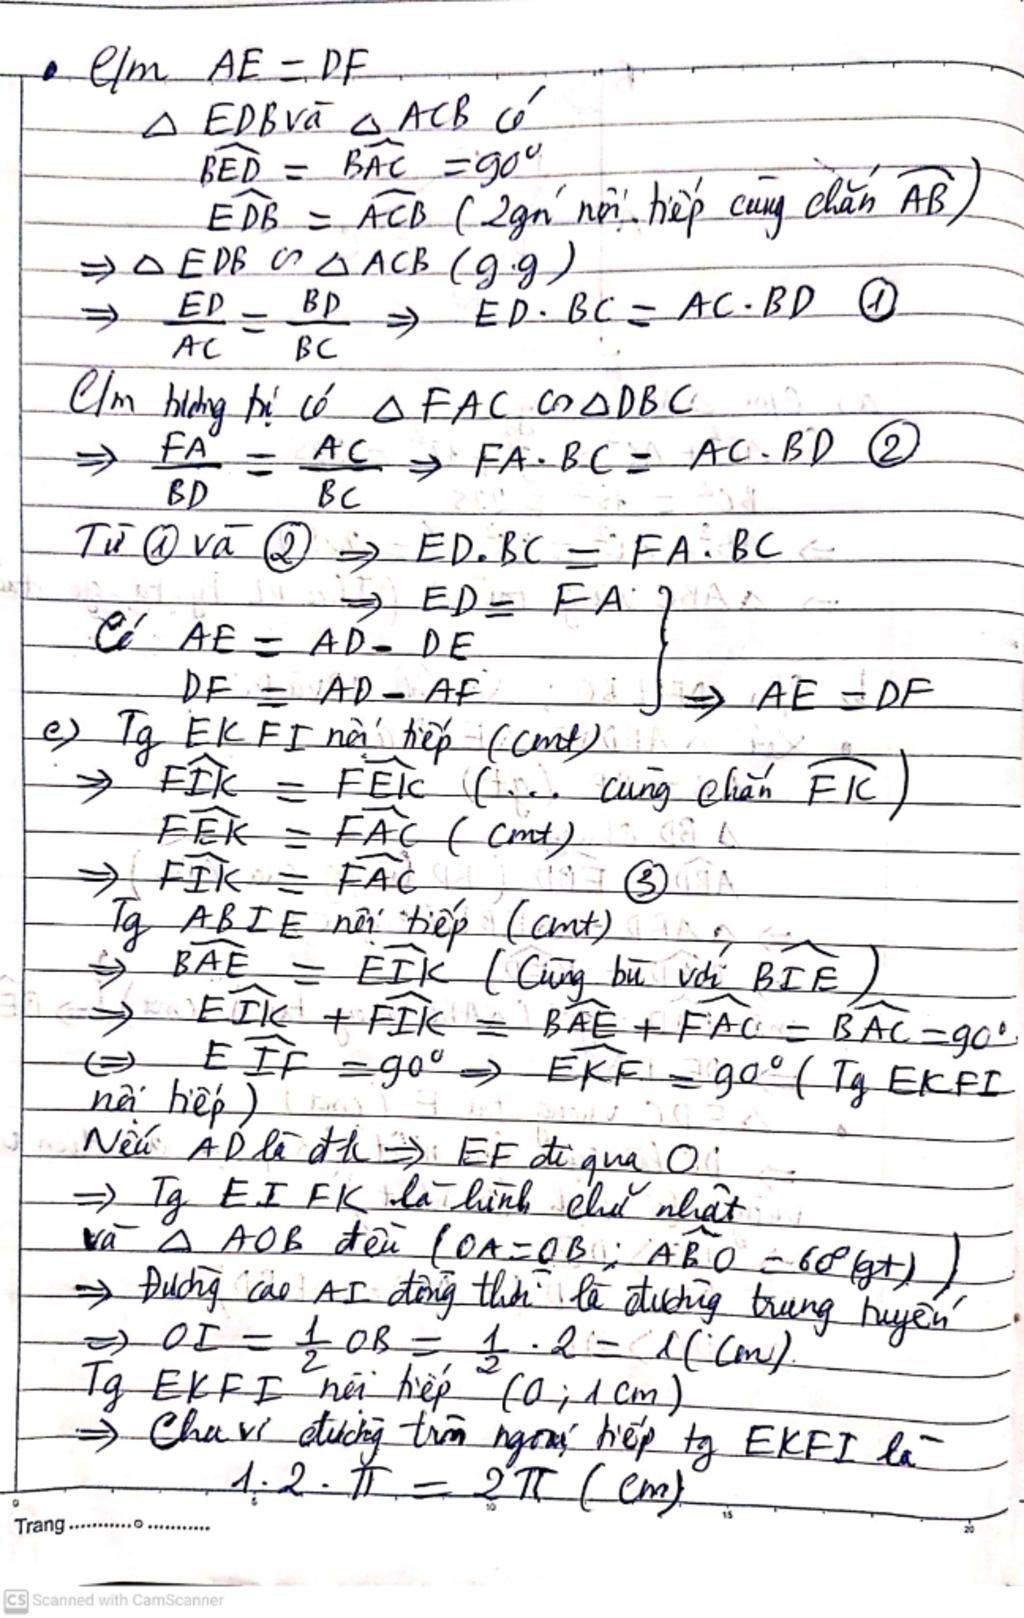 • C/m AE = DF
△ EDB và △ ACB có
BED = BAC = 90°
EDB = ACB (2gn nội tiếp cùng chắn AB)
⇒ △ EDB ∽ △ ACB (g.g)
⇒ ED/AC = BD/BC ⇒ ED . BC = AC . BD ①
C/m tương tự có △ FAC ∽ △ DBC
⇒ FA/BD = AC/BC ⇒ FA . BC = AC . BD ②
Từ ① và ② ⇒ ED . BC = FA . BC
⇒ ED = FA
Có AE = AD - DE
DF = AD - AF ⇒ AE = DF
e) Tg EKFI nội tiếp (cmt)
⇒ FIK = FEK (... cùng chắn FK)
FEK = FAC (cmt)
⇒ FIK = FAC ③
Tg ABIE nội tiếp (cmt)
⇒ BAE = EIK (Cùng bù với BIE)
⇒ EIK + FIK = BAE + FAC = BAC = 90°
⇔ EIF = 90° ⇒ EKF = 90° (Tg EKFI
nội tiếp)
Nếu AD là đk ⇒ EF đi qua O
⇒ Tg EIFK là hình chữ nhật
và △ AOB đều (OA = OB ; ABO = 60° (gt))
⇒ Đường cao AI đồng thời là đường trung tuyến
⇒ OI = 1/2 OB = 1/2 . 2 = 1 (cm).
Tg EKFI nội tiếp (O ; 1cm)
⇒ Chu vi đường tròn ngoại tiếp tg EKFI là
1 . 2 . π = 2π (cm)
0 5 10 15 20
Trang
CS Scanned with CamScanner